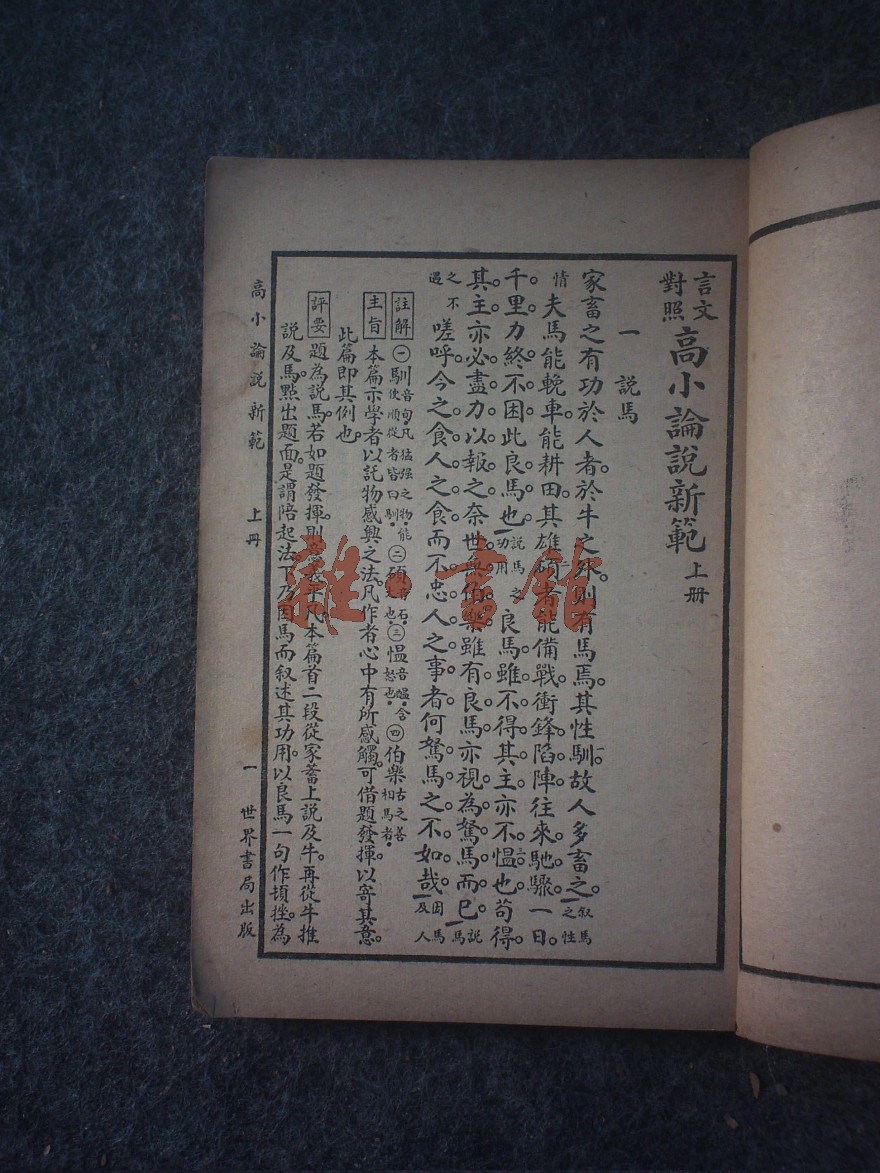 言文對照高小論說新範上冊
一 說馬
家畜之有功於人者。於牛之外。則有馬焉。其性馴。故人多畜之。叙馬之性
情 夫馬能輓車。能耕田。其雄碩者。能備戰。衝鋒陷陣。往來馳驟。一日。
千里。力終不困。此良馬也。說馬之功用 良馬雖不得其主。亦不慍也。苟得。
其主。亦必盡力以報之。奈世無伯樂。雖有良馬。亦視為駑馬而已。說馬
之不遇 嗟呼。今之食人之食。而不忠人之事者。何駑馬之不如哉。因馬及人
註解 ㊀馴 音旬。凡猛强之物。能使順從者皆曰馴。 ㊁碩 音石。也。 ㊂慍 音醞。含怒也。 ㊃伯樂 古之善相馬者。
主旨 本篇示學者以託物感興之法。凡作者心中有所感觸。可借題發揮。以寄其意。
此篇即其例也。
評要 題為說馬。若如題發揮。則意義平凡。本篇首二段從家蓄上說及牛。再從牛推
說及馬。點出題面。是謂陪起法。下乃因馬而叙述其功用。以良馬一句作頓挫。為
高小論說新範 上冊 一 世界書局出版
雜·書館